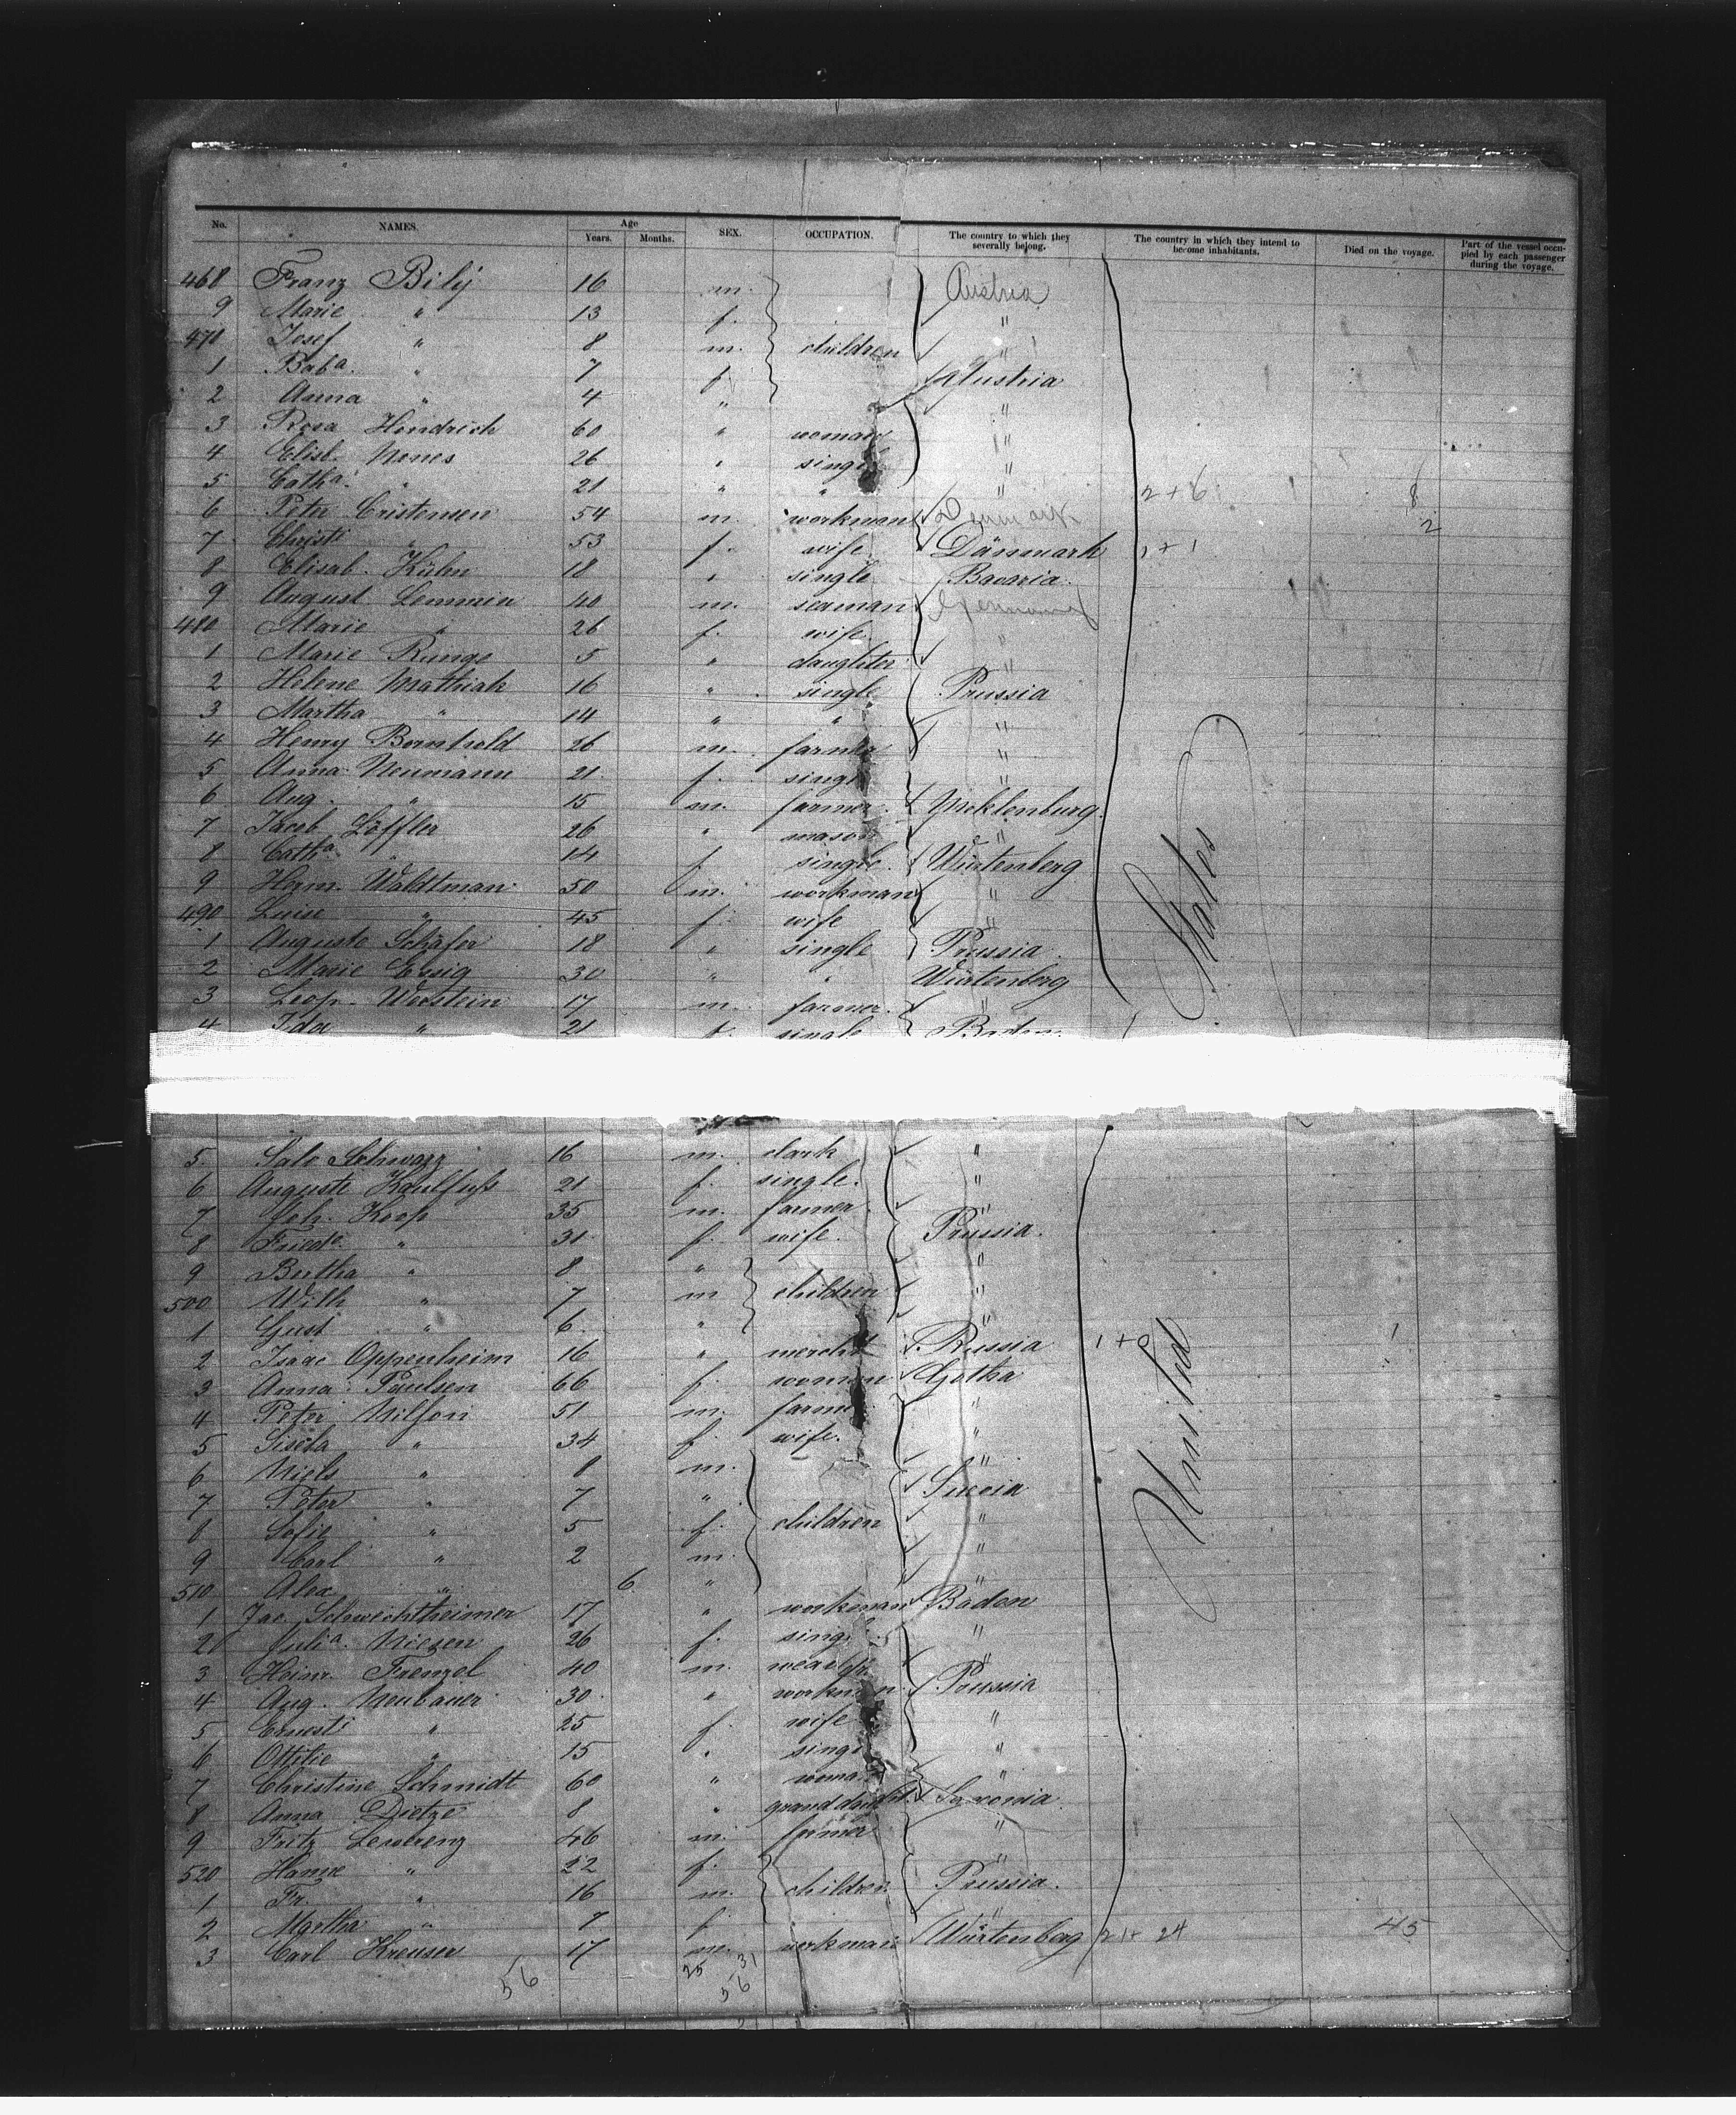 No. NAMES. Age Years. Months. SEX. OCCUPATION. The country to which they severally belong. The country in which they intend to become inhabitants. Died on the voyage. Part of the vessel occupied by each passenger during the voyage.
468 Franz Bilÿ 16 m. Austria
9 Marie " 13 f. "
470 Josef " 8 m. children "
1 Baba. " 7 f. Austria
2 Anna " 4 " "
3 Rosa Hendrich 60 " woman "
4 Elisb. Nones 26 " single "
5 Catha. " 21 " " " 2+6 8
6 Peter Cristensen 54 m. workman Denmark 2
7 Christi " 53 f. wife Dänmark 1+1
8 Elisab. Kühn 18 " single Bavaria.
9 August Lemmin 40 m. seaman Germany
480 Marie " 26 f. wife "
1 Marie Runge 5 " daughter "
2 Helene Mathiak 16 " single Prussia
3 Martha " 14 " " "
4 Henry Bornhold 26 m. farmer "
5 Anna Neumann 21 f. single "
6 Aug. " 15 m. farmer Meklenburg.
7 Jacob Löffler 26 " mason "
8 Catha " 14 f single Würtenberg
9 Herm. Waldtman 50 m. workman "
490 Luise " 45 f. wife "
1 Auguste Schäfer 18 " single Prussia
2 Marie Essig 30 " " Würtenberg
3 Leop. Weistein 17 m. farmer. "
4 Ida " 21 f. single Baden.
States
5 Salo Schwarz 16 m. clark "
6 Auguste Kaulfuß 21 f. single. "
7 Joh. Koop 35 m. farmer "
8 Friede. " 31 f. wife. Prussia.
9 Bertha " 8 " "
500 Wilh " 7 m children "
1 Gust " 6 " "
2 Isaac Oppenheim 16 " mercht Russia 1+0 1
3 Anna Paulsen 66 f. woman Gotha
4 Peter Nilson 51 m. farmer "
5 Sisela " 34 f. wife. "
6 Niels " 8 m. "
7 Peter " 7 " Suecia
8 Sofie " 5 f. children "
9 Carl " 2 m. "
510 Alex " 6 " "
1 Jac. Schwechtheimer 17 " workman Baden
2 Julia. Niezen 26 f. single "
3 Heinr. Frenzel 40 m. weaver "
4 Aug. Neubauer 30 " workman Prussia
5 Ernesti " 25 f. wife "
6 Ottilie " 15 " single "
7 Christine Schmidt 60 " woman "
8 Anna Dietze 8 " Saxonia
9 Fritz Leverenz 46 m. farmer "
520 Hanne " 22 f. "
1 Fr. " 16 m. children Prussia.
2 Martha " 7 f "
3 Carl Kreuser 17 m. workman Würtenberg 21+24 45
United
56 25 31
56